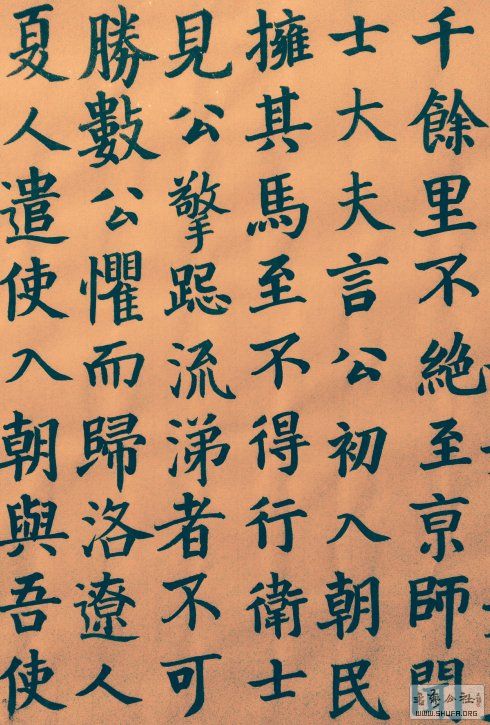 千餘里不絕至京師聞
士大夫言公初入朝民
擁其馬至不得行衛士
見公擎跽流涕者不可
勝數公懼而歸洛遼人
夏人遣使入朝與吾使
WWW.SHUFA.ORG